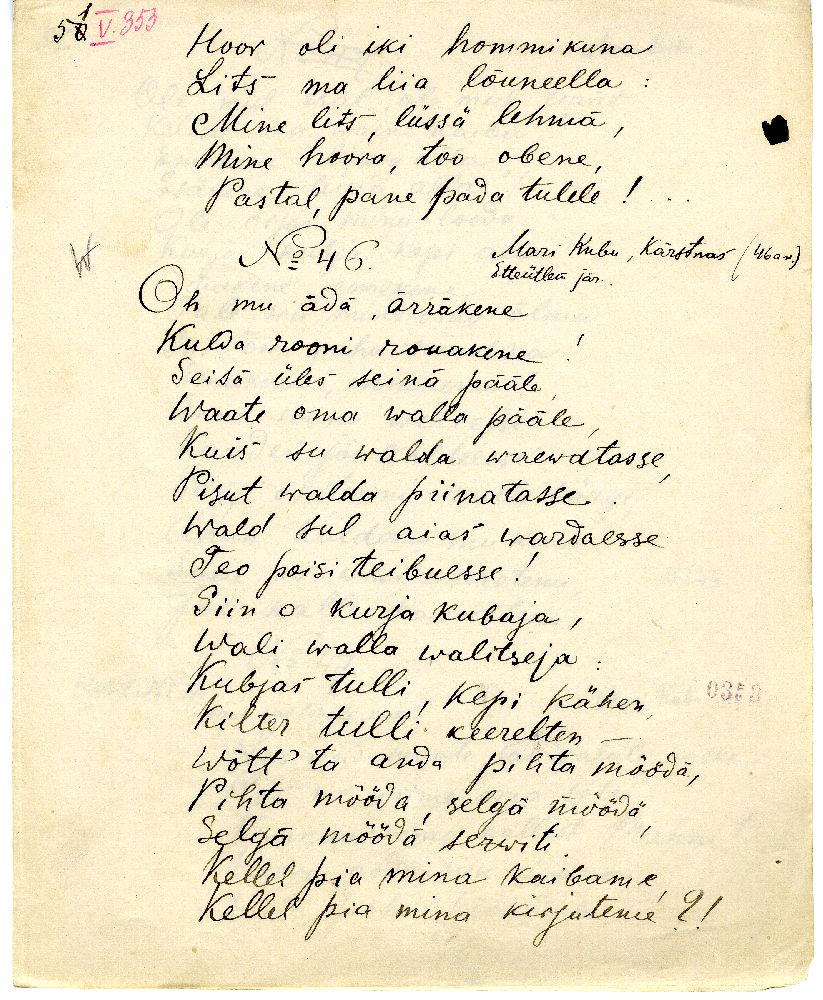 51 V. 353
Hoor oli iki hommikuna
Lits ma liia lõuneella :
Mine lits, lüssä lehmä,
Mine hoora, too obene,
Pastal, pane pada tulele! ...
No 46.
Mari Kubu, Kärstnas (46 a.v.)
Etteütleu jär.
Oh mu ädä, ärräkene
Kulda rooni rouakene!
Seisä üles seinä pääle,
Waate oma walla pääle,
Kuis su walda waewatasse,
Pisut walda piinatasse.
Wald sul aias wardaesse
Teo poisi teibuesse!
Siin o kurja kubaja,
Wali walla walitseja :
Kubjas tulli, kepi kähen,
Kilter tulli keerelten —
Wõtt' ta anda pihta möödä,
Pihta möödä, selgä möödä,
Selgä möödä serwiti.
Kellel pia mina kaibame,
Kellel pia mina kirjuteme?!
0353